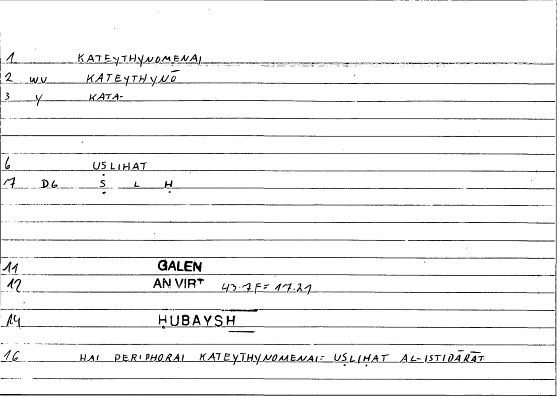 1 KATEYTHYNOMENAI
2 WV KATEYTHYNŌ
3 Y KATA-
6 UṢLIḤAT
7 DG Ṣ L Ḥ
11 GALEN
12 AN VIRT 43.7F=17.21
14 ḤUBAYSH
16 HAI PERIPHORAI KATEYTHYNOMENAI= UṢLIḤAT AL-ISTIDĀRĀT